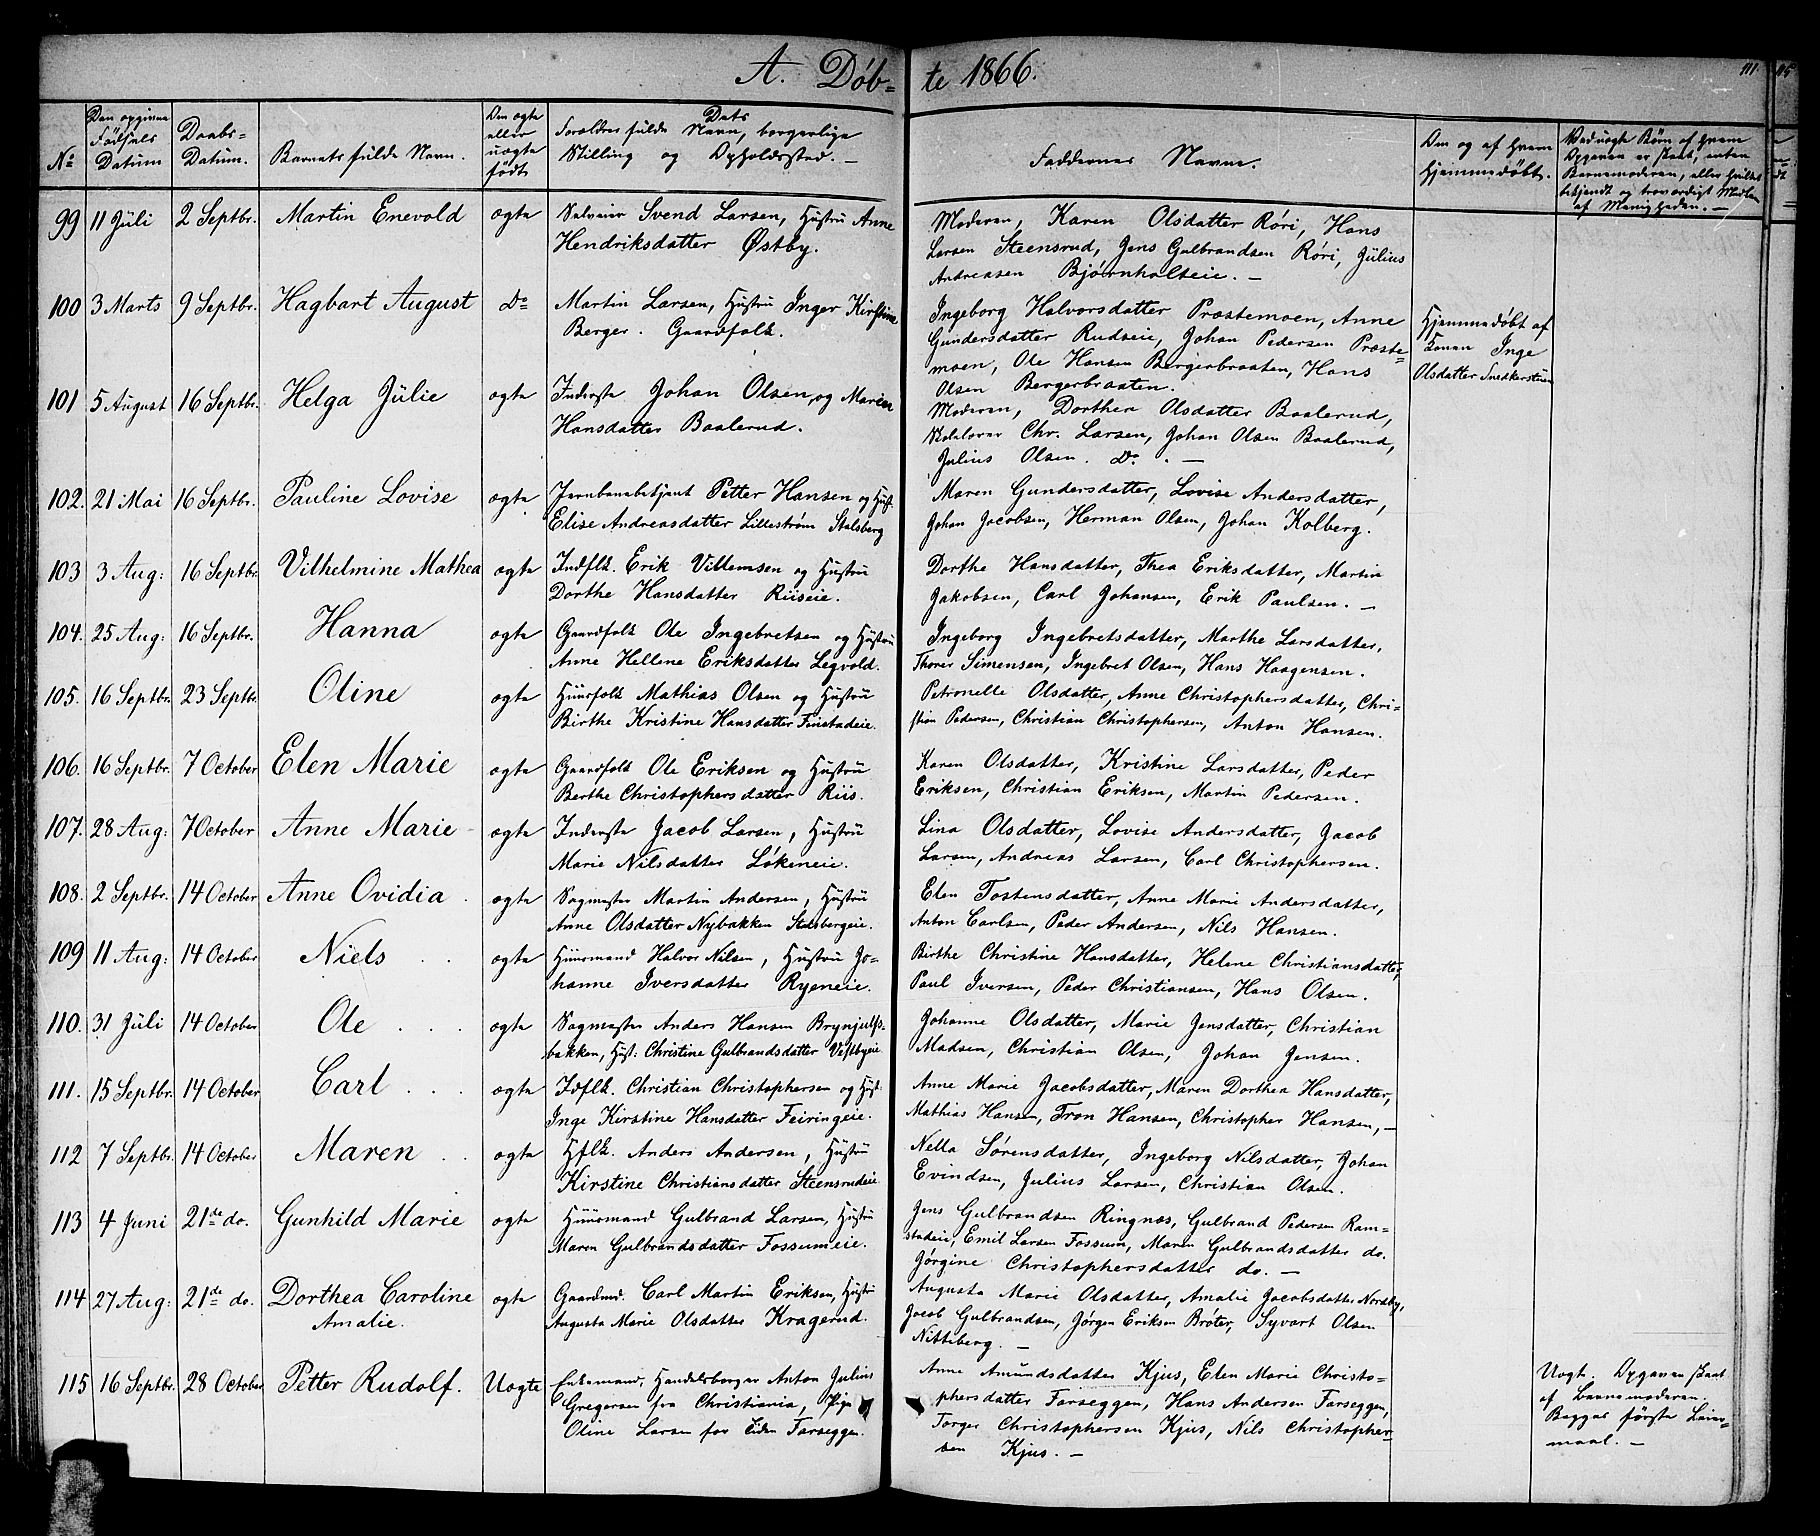 A. Döb=te 1866.
111
No
Den opgivne Fødsels Datum
Daabs= Datum.
Barnets fulde Navn.
Om ægte eller uægte født
Forældres fulde Navn, Dets borgerlige Stilling og Opholdssted. —
Faddernes Navne.
Om og af hvem hjemmedøbt.
Ved uægte Børn af hvem Opgaven er skeet, enten Barnemoderen, eller hvilket bekjendt og troværdigt Medlem af Menigheden. —
99 11 Jüli 2 Septbr. Martin Enevold ægte Svend Larsen, Hustrü Anne
Hendriksdatter Østby.
Moderen, Karen Olsdatter Røri, Hans
Larsen Steensrud, Jens Gulbrandsen Røri, Jülius
Andreasen Bjørnholseie. —
100 3 Marts 9 Septbr. Hagbart August Do Martin Larsen, Hustrü Inger Kirstine
Berger. Gaardfolk.
Ingeborg Halvorsdatter Præstemoen, Anne
Gundersdatter Rudseie, Johan Pedersen Præste=
moen, Ole Hansen Bergerbraaten, Hans
Olsen Bergerbraaten.
Hjemmedøbt af
Konen Inge
Olsdatter Snedkerstuen
101 5 August 16 Septbr. Helga Jülie ægte Inderste Johan Olsen, og Maren
Hansdatter Baalerud.
Moderen, Dorthea Olsdatter Baalerud,
Skolelærer Chr. Larsen, Johan Olsen Baalerud,
Julius Olsen. Do. —
102. 21 Mai 16 Septbr. Pauline Lovise ægte Jernbanebetjent Petter Hansen og Hust.
Elise Andreasdatter Lillestrøm Stalsberg
Maren Gundersdatter, Lovise Andersdatter,
Johan Jacobsen, Herman Olsen, Johan Kolberg.
103 3 Aug: 16 Septbr. Vilhelmine Mathea ægte Indflk. Erik Villemsen og Hustrü
Dorthe Hansdatter Riiseie.
Dorthe Hansdatter, Thea Eriksdatter, Martin
Jakobsen, Carl Johansen, Erik Paulsen. —
104. 25 Aug: 16 Septbr. Hanna ægte Gaardfolk Ole Ingebretsen og Hustrü
Anne Hellene Eriksdatter Legvold.
Ingeborg Ingebretsdatter, Marthe Larsdatter,
Thorer Simensen, Ingebret Olsen, Hans Haagensen.
105. 16 Septbr. 23 Septbr. Oline ægte Hüusfolk Mathias Olsen og Hustrü
Birthe Kristine Hansdatter Finstadeie.
Petronelle Olsdatter, Anne Christophersdatter, Chri=
stian Pedersen, Christian Christophersen, Anton Hansen.
106. 16 Septbr. 7 October Elen Marie ægte Gaardfolk Ole Eriksen og Hustrü
Berthe Christophersdatter Riis.
Karen Olsdatter, Kristine Larsdatter, Peder
Eriksen, Christian Eriksen, Martin Pedersen.
107. 28 Aug: 7 October Anne Marie ægte Inderste Jacob Larsen, Hustrü
Marie Nilsdatter Løkeneie.
Lina Olsdatter, Lovise Andersdatter, Jacob
Larsen, Andreas Larsen, Carl Christophersen.
108. 2 Septbr. 14 October Anne Ovidia ægte Sagmester Martin Andersen, Hustrü
Anne Olsdatter Nybakken Stalsbergeie.
Elen Tostensdatter, Anne Marie Andersdatter,
Anton Carlsen, Peder Andersen, Nils Hansen.
109 11 Aug: 14 October Niels ægte Hüusmand Halvor Nilsen, Hustrü Jo=
hanne Iversdatter Ryeneie.
Birthe Christine Hansdatter, Helene Christiansdatter,
Paul Iversen, Peder Christiansen, Hans Olsen.
110. 31 Jüli 14 October Ole ægte Sagmester Anders Hansen Brynjulfs=
bakken, Hust: Christine Gulbrandsdatter Vestbyeie
Johanne Olsdatter, Marie Jensdatter, Christian
Madsen, Christian Olsen, Johan Jensen.
111. 15 Septbr. 14 October Carl ægte Idflk. Christian Christophersen og Hust.
Inge Kirstine Hansdatter Feiringeie.
Anne Marie Jacobsdatter, Maren Dorthea Hansdatter,
Mathias Hansen, Tron Hansen, Christopher Hansen, —
112 7 Septbr. 14 October Maren ægte Hflk. Anders Andersen, Hustrü
Kirstine Christiansdatter Steensrudeie
Nella Sørensdatter, Ingeborg Nilsdatter, Johan
Evindsen, Julius Larsen, Christian Olsen.
113 4 Juni 21de do. Gunhild Marie ægte Hüusmand Gulbrand Larsen, Hustrü
Maren Gulbrandsdatter Fossumeie.
Jens Gulbrandsen Ringnæs, Gulbrand Pedersen Ram=
stadeie, Emil Larsen Fossum, Maren Gulbrandsdatter do.
Jørgine Christophersdatter do. —
114 27 Aug: 21de do. Dorthea Caroline
Amalie. ægte Gaardmd. Carl Martin Eriksen, Hustr
Augusta Marie Olsdatter Kragerud.
Augusta Marie Olsdatter, Amalie Jacobsdatter Nordby,
Jacob Gulbrandsen, Jørgen Eriksen Brøter, Syvart Olsen
Nitteberg. —
115 16 Septbr. 28 October Petter Rudolf. Uægte Enkemand, Handelsborger Anton Julius
Gregersen fra Christiania, Pige
Oline Larsen fra Eiden Farseggen.
Anne Amundsdatter Kjus, Elen Marie Christo=
phersdatter Farseggen, Hans Andersen Farseggen,
Torger Christophersen Kjus, Nils Christopher=
sen Kjus. —
Uægt. Opgaven skeet
af Barnemoderen.
Begges første Leier=
maal. —